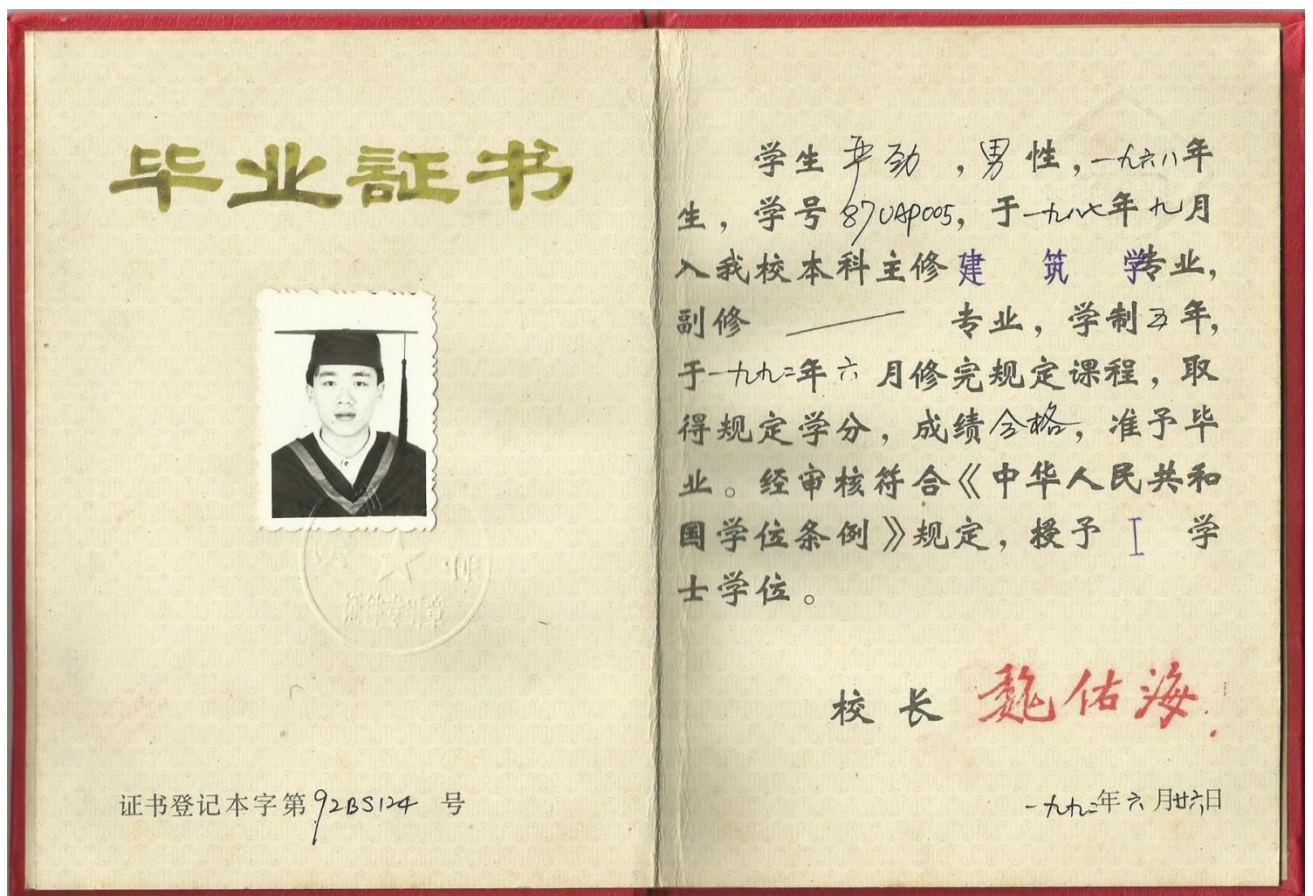 毕业証书
证件专用章
证书登记本字第92BS124 号
学生 严劲 ,男性,一九六八年
生,学号87UAP005,于一九八七年九月
入我校本科主修建 筑 学专业,
副修 —— 专业,学制五年,
于一九九二年六月修完规定课程,取
得规定学分,成绩合格,准予毕
业。经审核符合《中华人民共和
国学位条例》规定,授予 工 学
士学位。
校 长 魏佑海
一九九二年六月廿六日